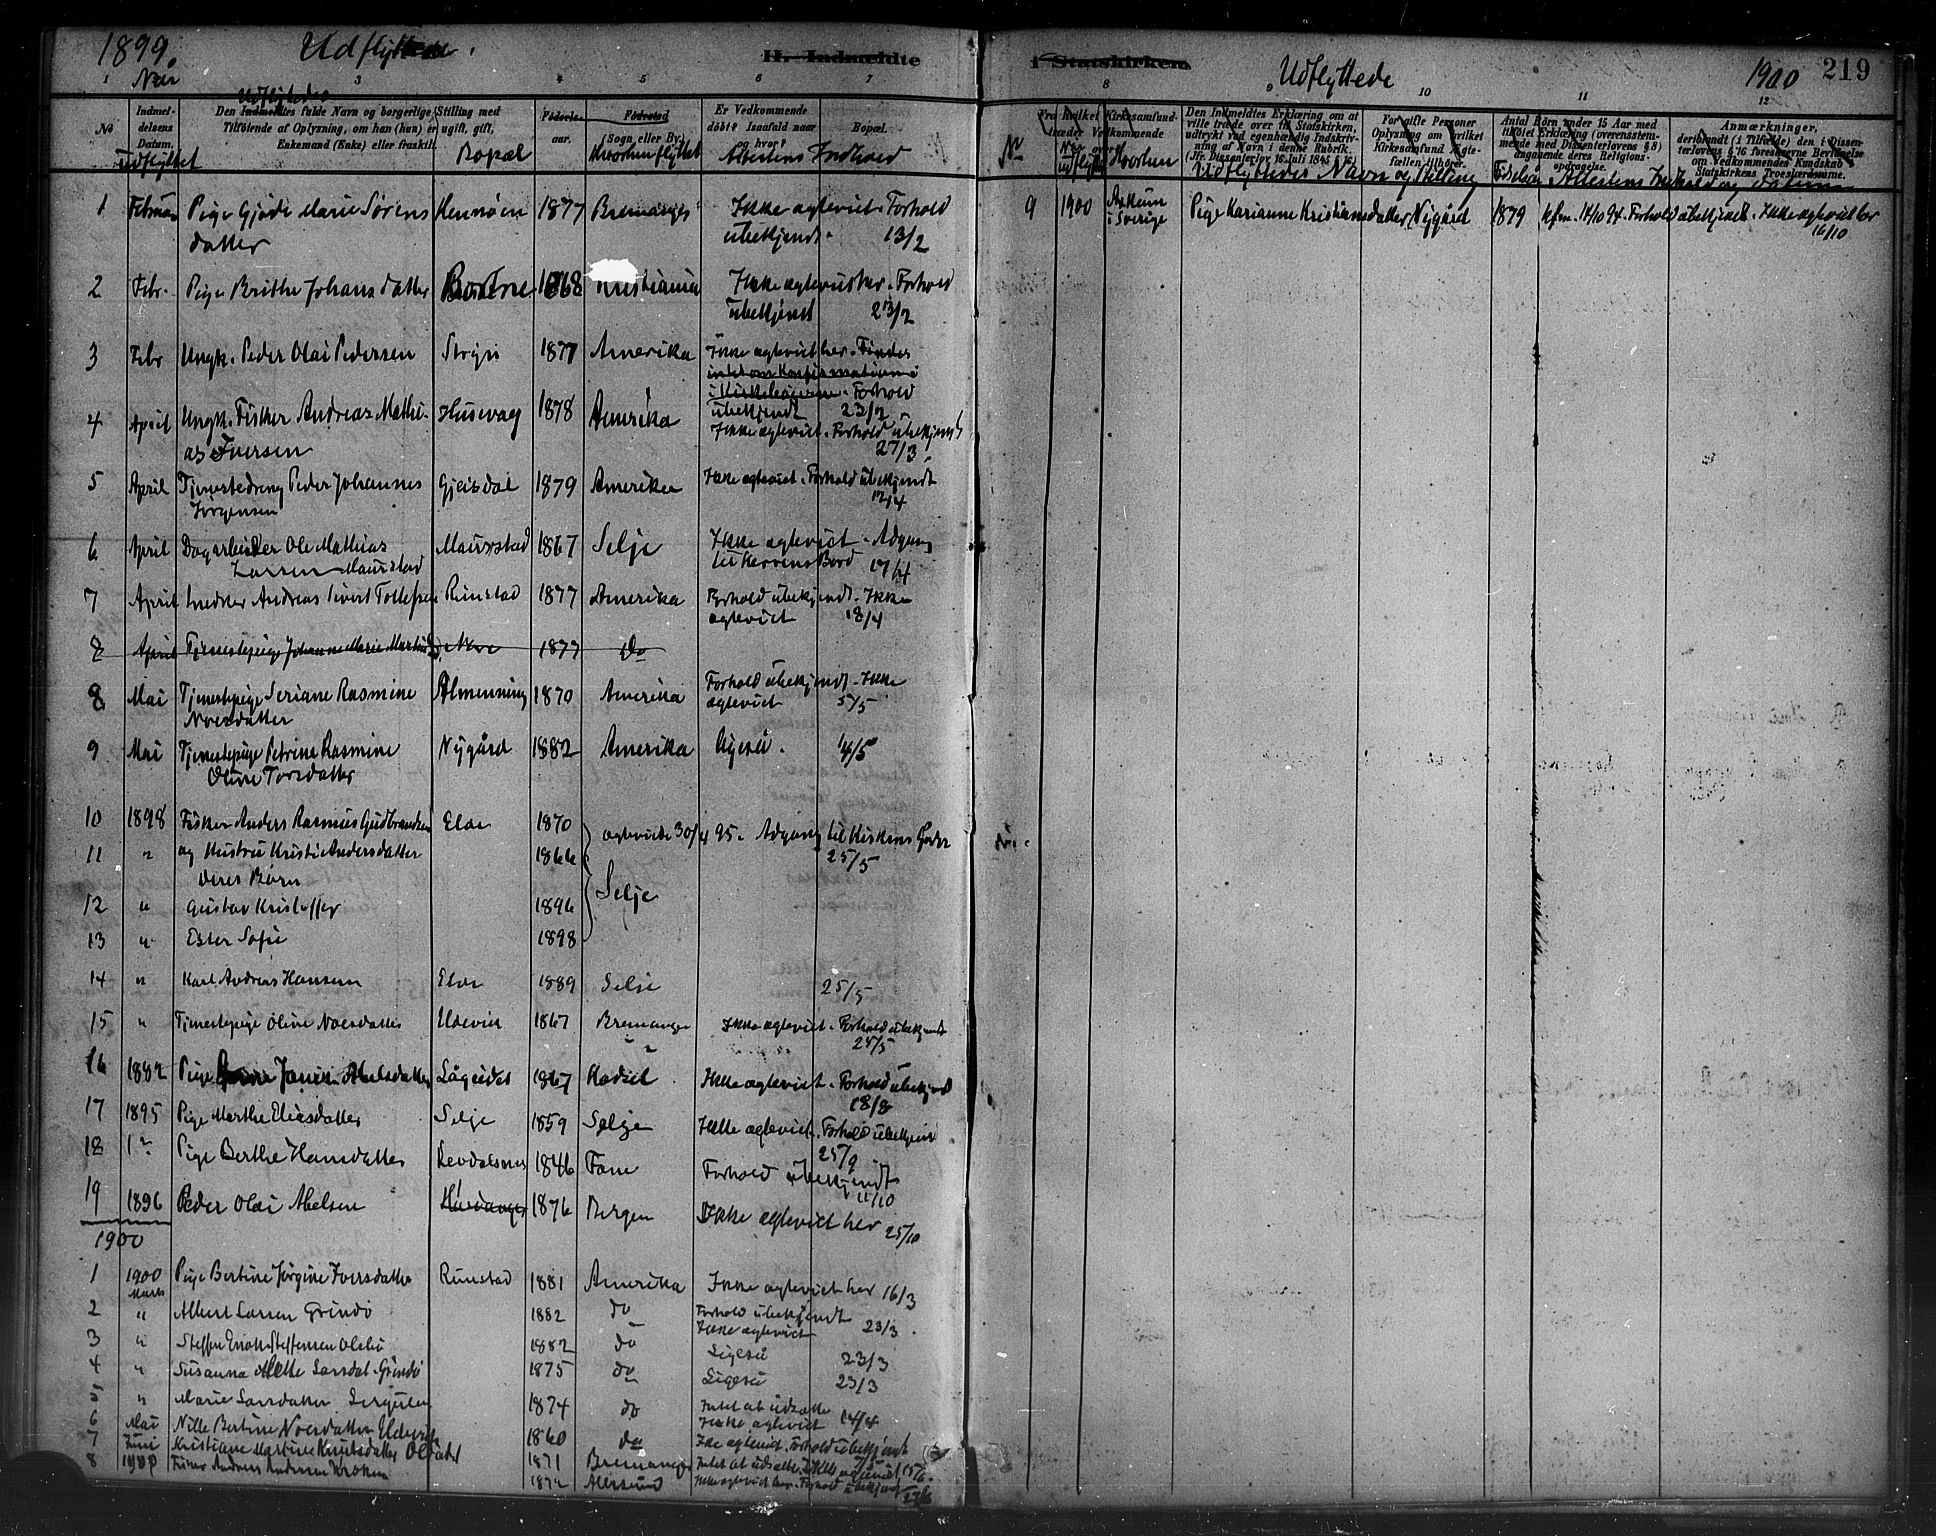 1899.
Udflyttede.
H. Indmeldte
i Statskirken
Udflyttede
1900
219
1 3 4 5 6 7
8 10 11 12
Når
Udflyttedes
No
Indmeldelsens Datum.
udflyttet
Den Indmeldtes fulde Navn og borgerlige Stilling med
Tilføiende af Oplysning, om han (hun) er ugift, gift,
Enkemand (Enke) eller fraskilt.
Bopæl
Fødselsaar.
Fødested
(Sogn eller By).
Hvorhen flyttet
Er Vedkommende
døbt? Isaafald naar
og hvor?
Bopæl.
Attestens Indhold
Nr
Fra hvilket Kirkesamfund
træder Vedkommende over?
Når udflyttet
Hvorhen
Den Indmeldtes Erklæring om at
ville træde over til Statskirken,
udtrykt ved egenhændig Indskrivning
af Navn i denne Rubrik.
(Jfr. Dissenterlov 16 Juli 1845 § 16)
For gifte Personer
Oplysning om hvilket
Kirkesamfund Ægtefællen
tilhører.
Udflyttedes Navn og Stilling
Antal Børn under 15 Aar med
tilføiet Erklæring (overensstemmende
med Dissenterlovens § 8)
angaaende deres Religionsopdragelse.
Anmærkninger,
deriblandt (i Tilfælde) den i Dissenterlovens
§ 16 foreskrevne Bevidnelse
om Vedkommendes Kundskab i
Statskirkens Troeslærdomme.
Attestens Indhold og datum
1 Februar Pige Gjøde Marie Sørens Hennøen 1877 Bremanger Ikke ægteviet. Forhold
datter ubekjendt. 13/2
9 1900 Askum i Sverige Pige Karianne Kristiansdatter Nygård 1879 kfm. 14/10 94. Forhold ubekjendt. Ikke ægteviet her 16/10
2 Febr. Pige Brithe Johansdatter 1868 Kristiania Ikke ægteviet her. Forhold
ubekjendt 23/2
3 Febr Ungk. Peder Olai Pedersen Stryn 1877 Amerika Ikke ægteviet her. Findes
intet om Konfirmationen
i Kirkebøgerne. Forhold
ubekjendt 23/2
4 April Ungk. Fisker Andreas Mathi- Husevåg 1878 Amerika Ikke ægteviet. Forhold ubekjendt
as Iversen 27/3
5 April Tjenestedreng Peder Johannes Gjeisdal 1879 Amerika Ikke ægteviet. Forhold ubekjendt
Jørgensen 12/4
6 April Dagarbeider Ole Mathias Maurstad 1867 Selje Ikke ægteviet. Adgang
Larsen Maurstad til Herrens Bord 17/4
7 April Snedker Andreas Sivert Tollefsen Rimstad 1877 Amerika Forhold ubekjendt. Ikke
ægteviet 18/4
8 April Tjenestepige Johanne Marie 1877 do
8 Mai Tjenestepige Seriane Rasmine Almenning 1870 Amerika Forhold ubekjendt. Ikke
Noesdatter ægteviet 5/5
9 Mai Tjenestepige Petrine Rasmine Nygård 1882 Amerika Ligeså. 14/5
Oline Torsdatter
10 1898 Fisker Anders Rasmus Gudbrandsen Elde 1870 ægteviede 30/4 95. Adgang til Kirkens Goder
11 " og Hustru Kristi Andersdatter 1866 25/5
deres Børn Selje
12 " Gustav Kristoffer 1896
13 " Ester Sofie 1898
14 " Karl Andreas Hansen Elde 1889 Selje 25/5
15 " Tjenestepige Oline Noesdatter Eldevik 1867 Bremanger Ikke ægteviet. Forhold ubekjendt
25/5
16 1882 Pige Abelsdatter Lågeidet 1867 Hadsel Ikke ægteviet. Forhold ubekjendt
18/8
17 1895 Pige Marthe Eliasdatter Selje 1859 Selje Ikke ægteviet. Forhold ubekjendt
25/9
18 Pige Berthe Hansdatter Levdalsnes 1846 Fane Forhold ubekjendt
11/10
19 1896 Peder Olai Abelsen Hardanger 1876 Bergen Ikke ægteviet her 25/10
1900
1 1900 Marts Pige Bertine Jørgine Iversdatter Rimstad 1881 Amerika Ikke ægteviet her 16/3
2 " Albert Larsen Grindø 1882 do Forhold ubekjendt
Ikke ægteviet 23/3
3 " Steffen Steffensen 1882 do Ligeså 23/3
4 " Susanna Mette Larsdat. Grindø 1875 do Ligeså 23/3
5 " Marie Larsdatter 1874 do Intet at udsætte
Ikke ægteviet 14/4
6 Mai Nille Bertine Noesdatter Eldevik 1860 do Ikke ægteviet. Forhold ubekjendt
7 Juni Kristiane Martine Knutsdatter 1871 Bremanger Intet at udsætte. Ikke ægteviet 15/6
8 Andreas Andersen 1872 Ålesund Ikke ægteviet her. Forhold ubekjendt